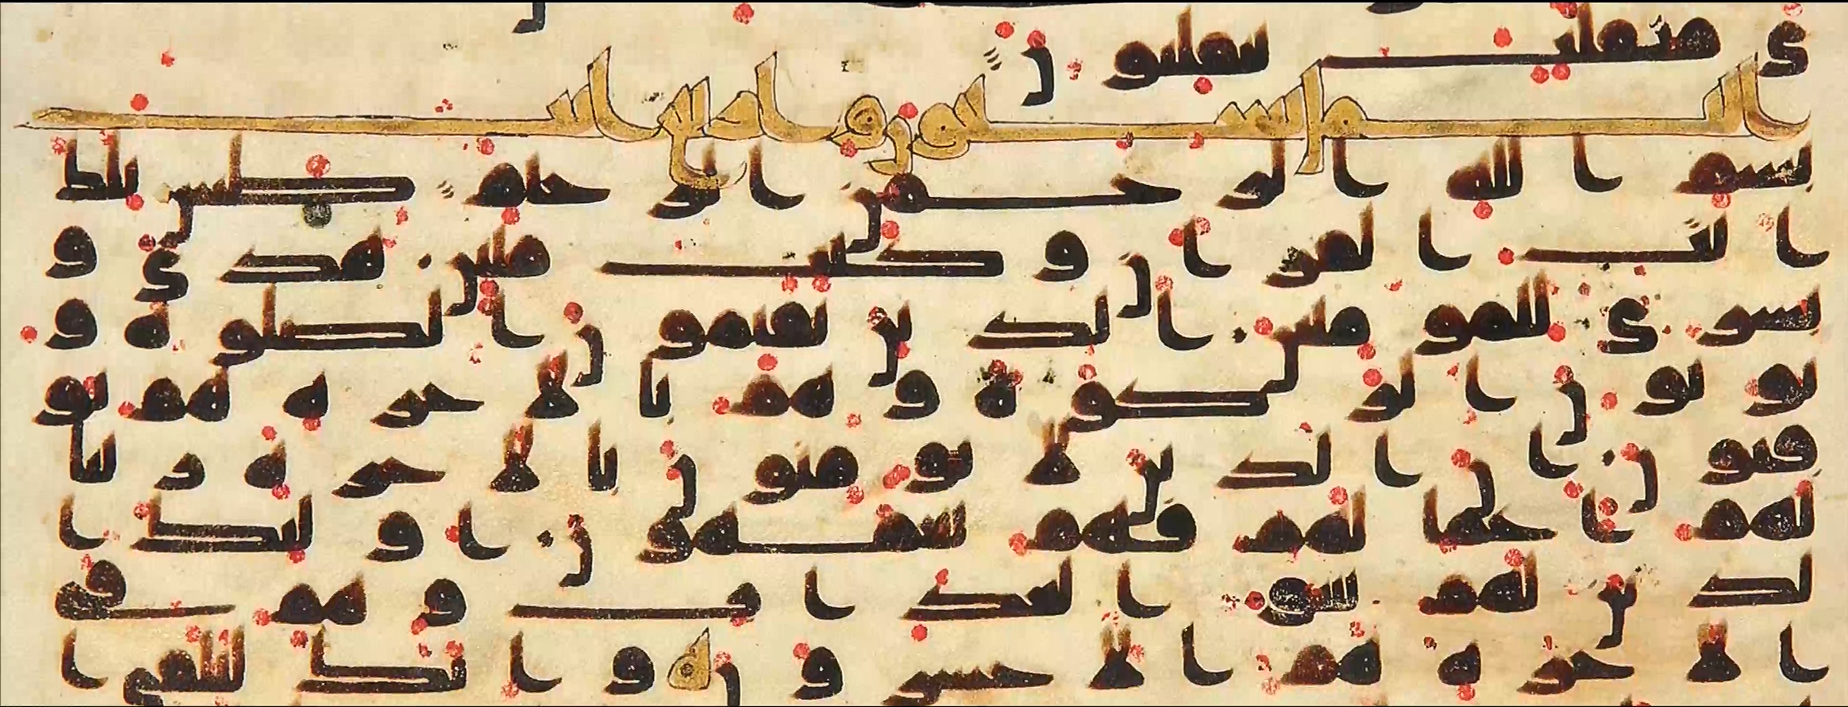 ى منقلب ينقلبون
النمل تسعون واربع ايات
بسم الله الرحمن الرحيم طس تلك
ايت القران وكتب مبين هدى و
بشرى للمومنين الذين يقيمون الصلوة و
يوتون الزكوة وهم بالاخرة هم يو
قنون ان الذين لا يومنون بالاخرة زينا
لهم اعملهم فهم يعمهون اولئك ا
لذين لهم سو العذاب وهم فى
الاخرة هم الاخسرون وانك لتلقى ا